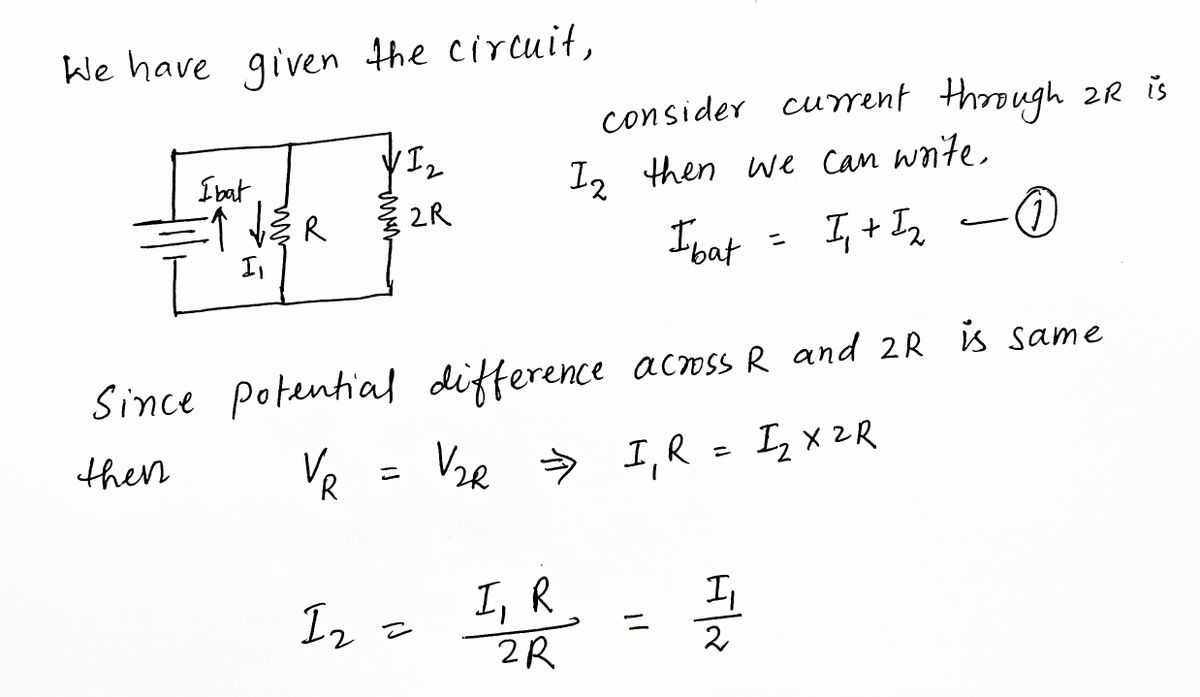 We have given the circuit,
consider current through 2R is
I₂ then we can write,
I_bat = I₁ + I₂ —①
I_bat
I₁
R
I₂
2R
Since potential difference across R and 2R is same
then V_R = V_2R ⇒ I₁R = I₂ × 2R
I₂ = I₁R / 2R = I₁ / 2